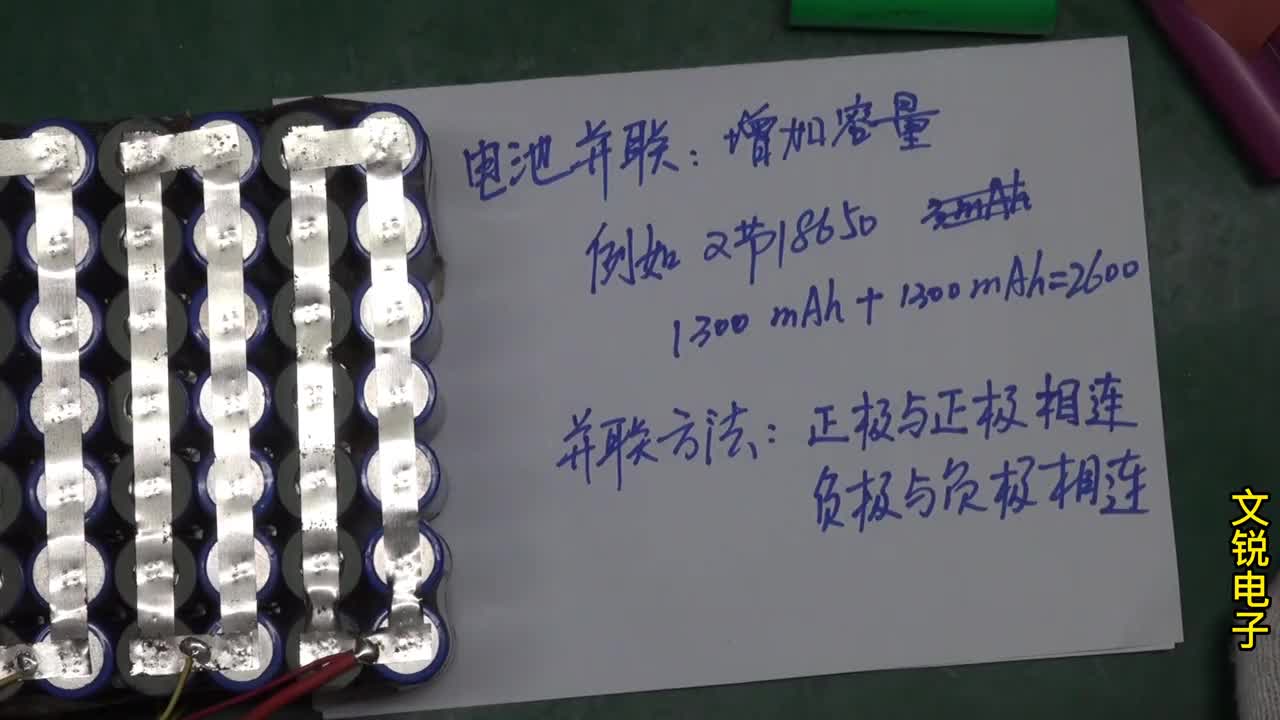 电池并联：增加容量
例如 2节18650
1300 mAh + 1300 mAh=2600
并联方法：正极与正极相连
负极与负极相连
文锐电子